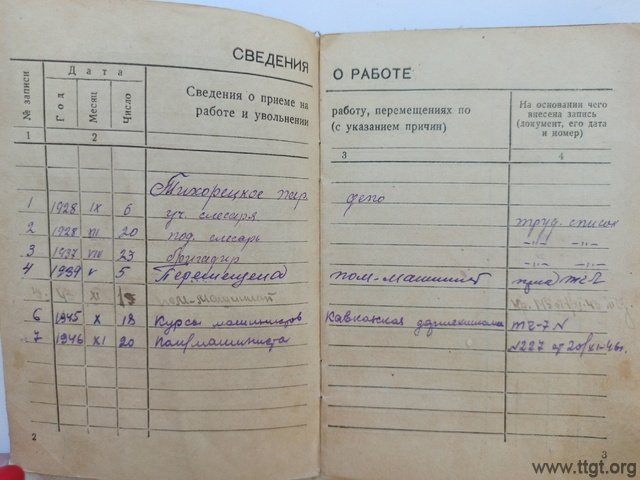 СВЕДЕНИЯ О РАБОТЕ
№ записи
Дата
Год
Месяц
Число
Сведения о приеме на
работе и увольнении
работу, перемещениях по
(с указанием причин)
На основании чего
внесена запись
(документ, его дата
и номер)
1 2 3 4
Тихорецкое пар. депо
1 1928 IX 6 уч. слесаря труд. список
2 1928 XII 20 под. слесарь -"- -"-
3 1937 VIII 23 бригадир -"- -"-
4 1939 V 5 Перемещена пом-машинист ТЧ-7
XI пом-машинист
6 1945 X 18 Курсы машинистов Кавказская ТЧ-7 №
7 1946 XI 20 Пом/машиниста №227 от 20/XI-46г.
2
3
www.ttgt.org